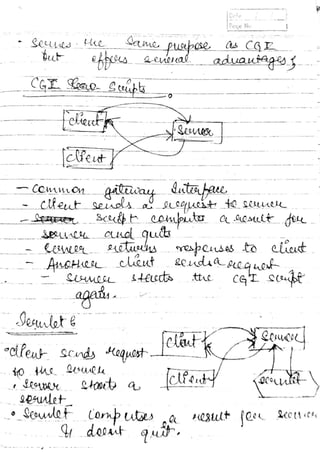 Date
Page No.
- Serves the same purpose as CGI
but offers several advantages;
CGI Scripts
client
Server
client
- Common gateway Interface
- Client sends a request to server
- script computes a result for
server and quits
- Server returns responses to client
- Another client sends a request
- Server starts the CGI script
again.
Servlet
• client sends request
to the server
• Server starts a
servlet
client
Server
client
servlet
• Servlet computes a result for server
& doesnt quit.